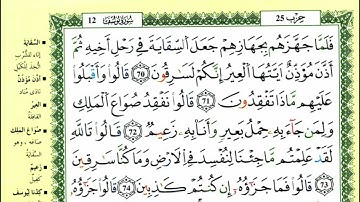 سورة يوسف 12
حزب 25
فَلَمَّا جَهَّزَهُم بِجَهَازِهِمْ جَعَلَ اَلسِّقَايَةَ فِي رَحْلِ أَخِيهِ ثُمَّ
أَذَّنَ مُؤَذِّنٌ أَيَّتُهَا اَلْعِيرُ إِنَّكُمْ لَسَٰرِقُونَ 70 قَالُوا وَأَقْبَلُوا
عَلَيْهِم مَّاذَا تَفْقِدُونَ 71 قَالُوا نَفْقِدُ صُوَاعَ اَلْمَلِكِ
وَلِمَن جَآءَ بِهِۦ حِمْلُ بَعِيرٍ وَأَنَا بِهِۦ زَعِيمٌ 72 قَالُوا تَاللَّهِ
لَقَدْ عَلِمْتُم مَّا جِئْنَا لِنُفْسِدَ فِي اِلَارْضِ وَمَا كُنَّا سَٰرِقِينَ
73 قَالُوا فَمَا جَزَٰٓؤُهُۥٓ إِن كُنتُمْ كَٰذِبِينَ 74 قَالُوا جَزَٰٓؤُهُۥ
السقاية
أذن مؤذن
العير
القافلة
صواع الملك
زعيم
كدنا ليوسف